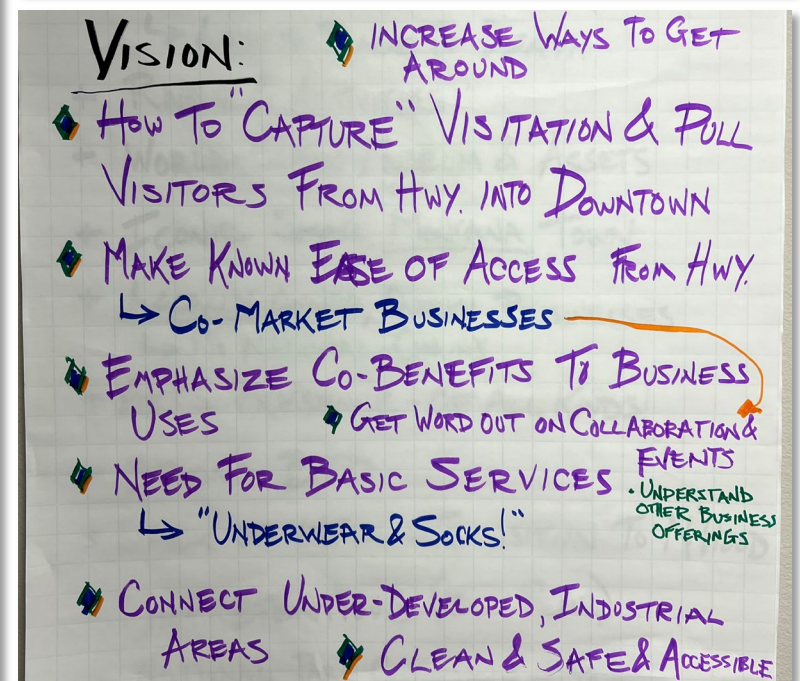 VISION:
INCREASE WAYS TO GET
AROUND
HOW TO "CAPTURE" VISITATION & PULL
VISITORS FROM HWY. INTO DOWNTOWN
MAKE KNOWN EASE OF ACCESS FROM HWY.
↳ CO-MARKET BUSINESSES
EMPHASIZE CO-BENEFITS TO BUSINESS
USES
GET WORD OUT ON COLLABORATION &
EVENTS
• UNDERSTAND
OTHER BUSINESS
OFFERINGS
NEED FOR BASIC SERVICES
↳ "UNDERWEAR & SOCKS!"
CONNECT UNDER-DEVELOPED, INDUSTRIAL
AREAS
CLEAN & SAFE & ACCESSIBLE